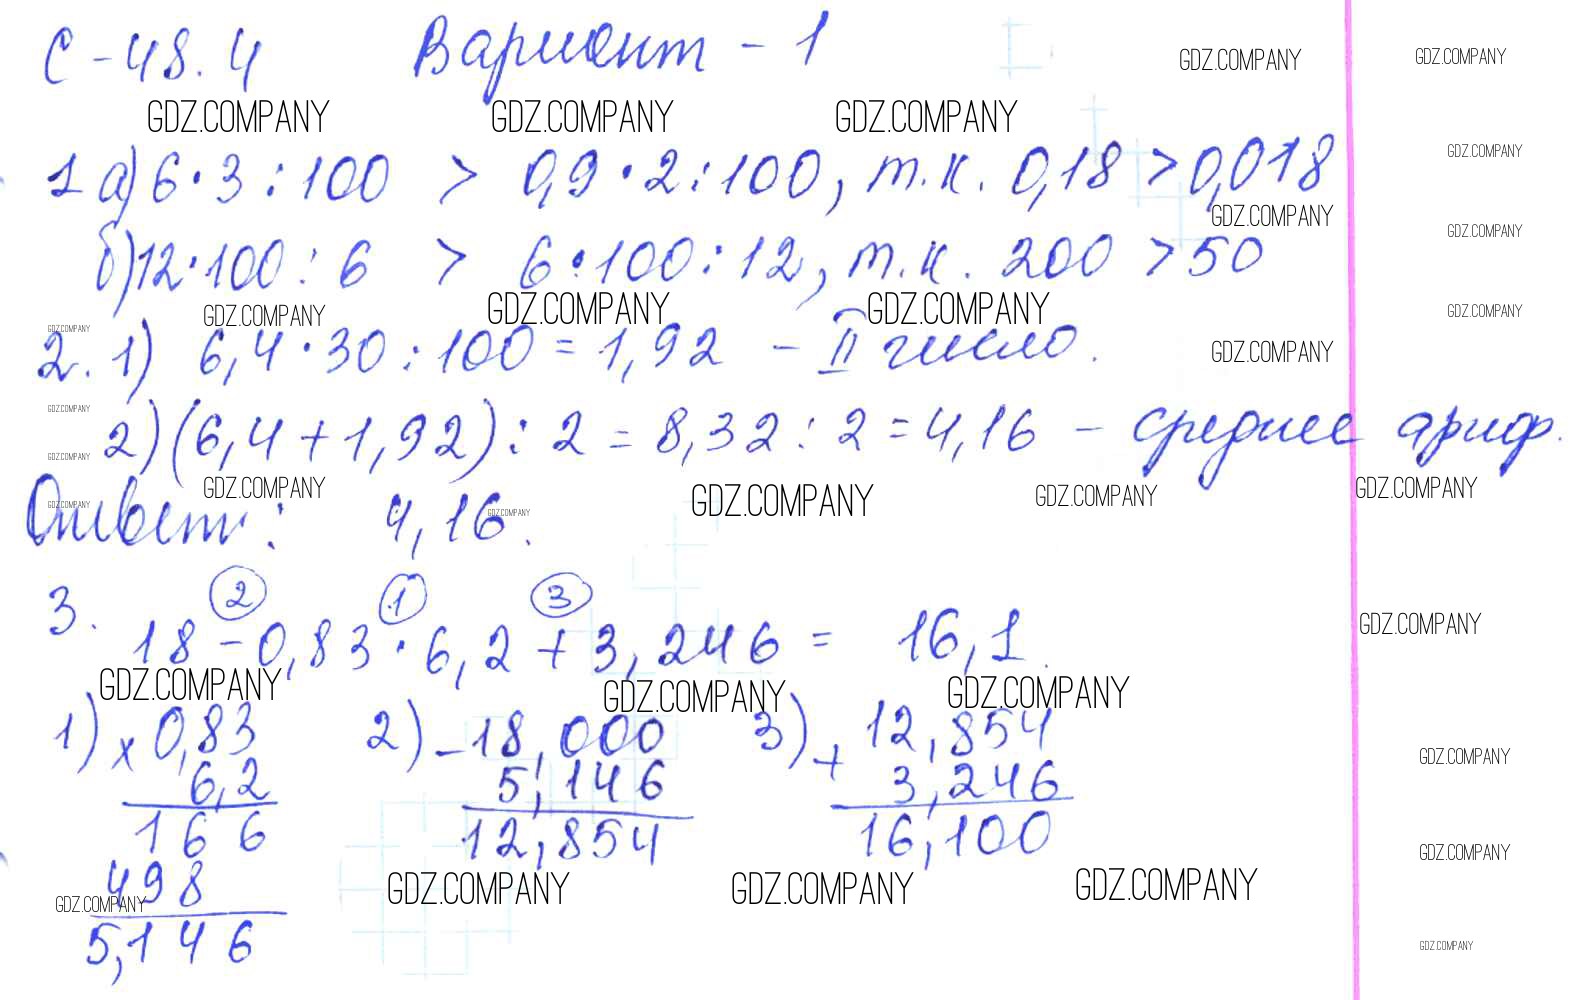 С-48.4 Вариант - 1
GDZ.COMPANY GDZ.COMPANY
GDZ.COMPANY GDZ.COMPANY GDZ.COMPANY
GDZ.COMPANY
1 а) 6·3:100 > 0,9·2:100, т.к. 0,18 > 0,018
GDZ.COMPANY
GDZ.COMPANY
б) 12·100:6 > 6·100:12, т.к. 200 > 50
GDZ.COMPANY GDZ.COMPANY GDZ.COMPANY GDZ.COMPANY
GDZ.COMPANY
2. 1) 6,4·30:100 = 1,92 - II число.
GDZ.COMPANY
GDZ.COMPANY
2) (6,4+1,92):2 = 8,32:2 = 4,16 - среднее ариф.
GDZ.COMPANY
GDZ.COMPANY GDZ.COMPANY GDZ.COMPANY GDZ.COMPANY
GDZ.COMPANY GDZ.COMPANY
Ответ: 4,16.
2 1 3
3. 18 - 0,83·6,2 + 3,246 = 16,1.
GDZ.COMPANY
GDZ.COMPANY GDZ.COMPANY GDZ.COMPANY
1) × 0,83 2) - 18,000 3) + 12,854
6,2 5,146 3,246
GDZ.COMPANY
166 12,854 16,100
GDZ.COMPANY
498
GDZ.COMPANY GDZ.COMPANY GDZ.COMPANY GDZ.COMPANY
5,146
GDZ.COMPANY